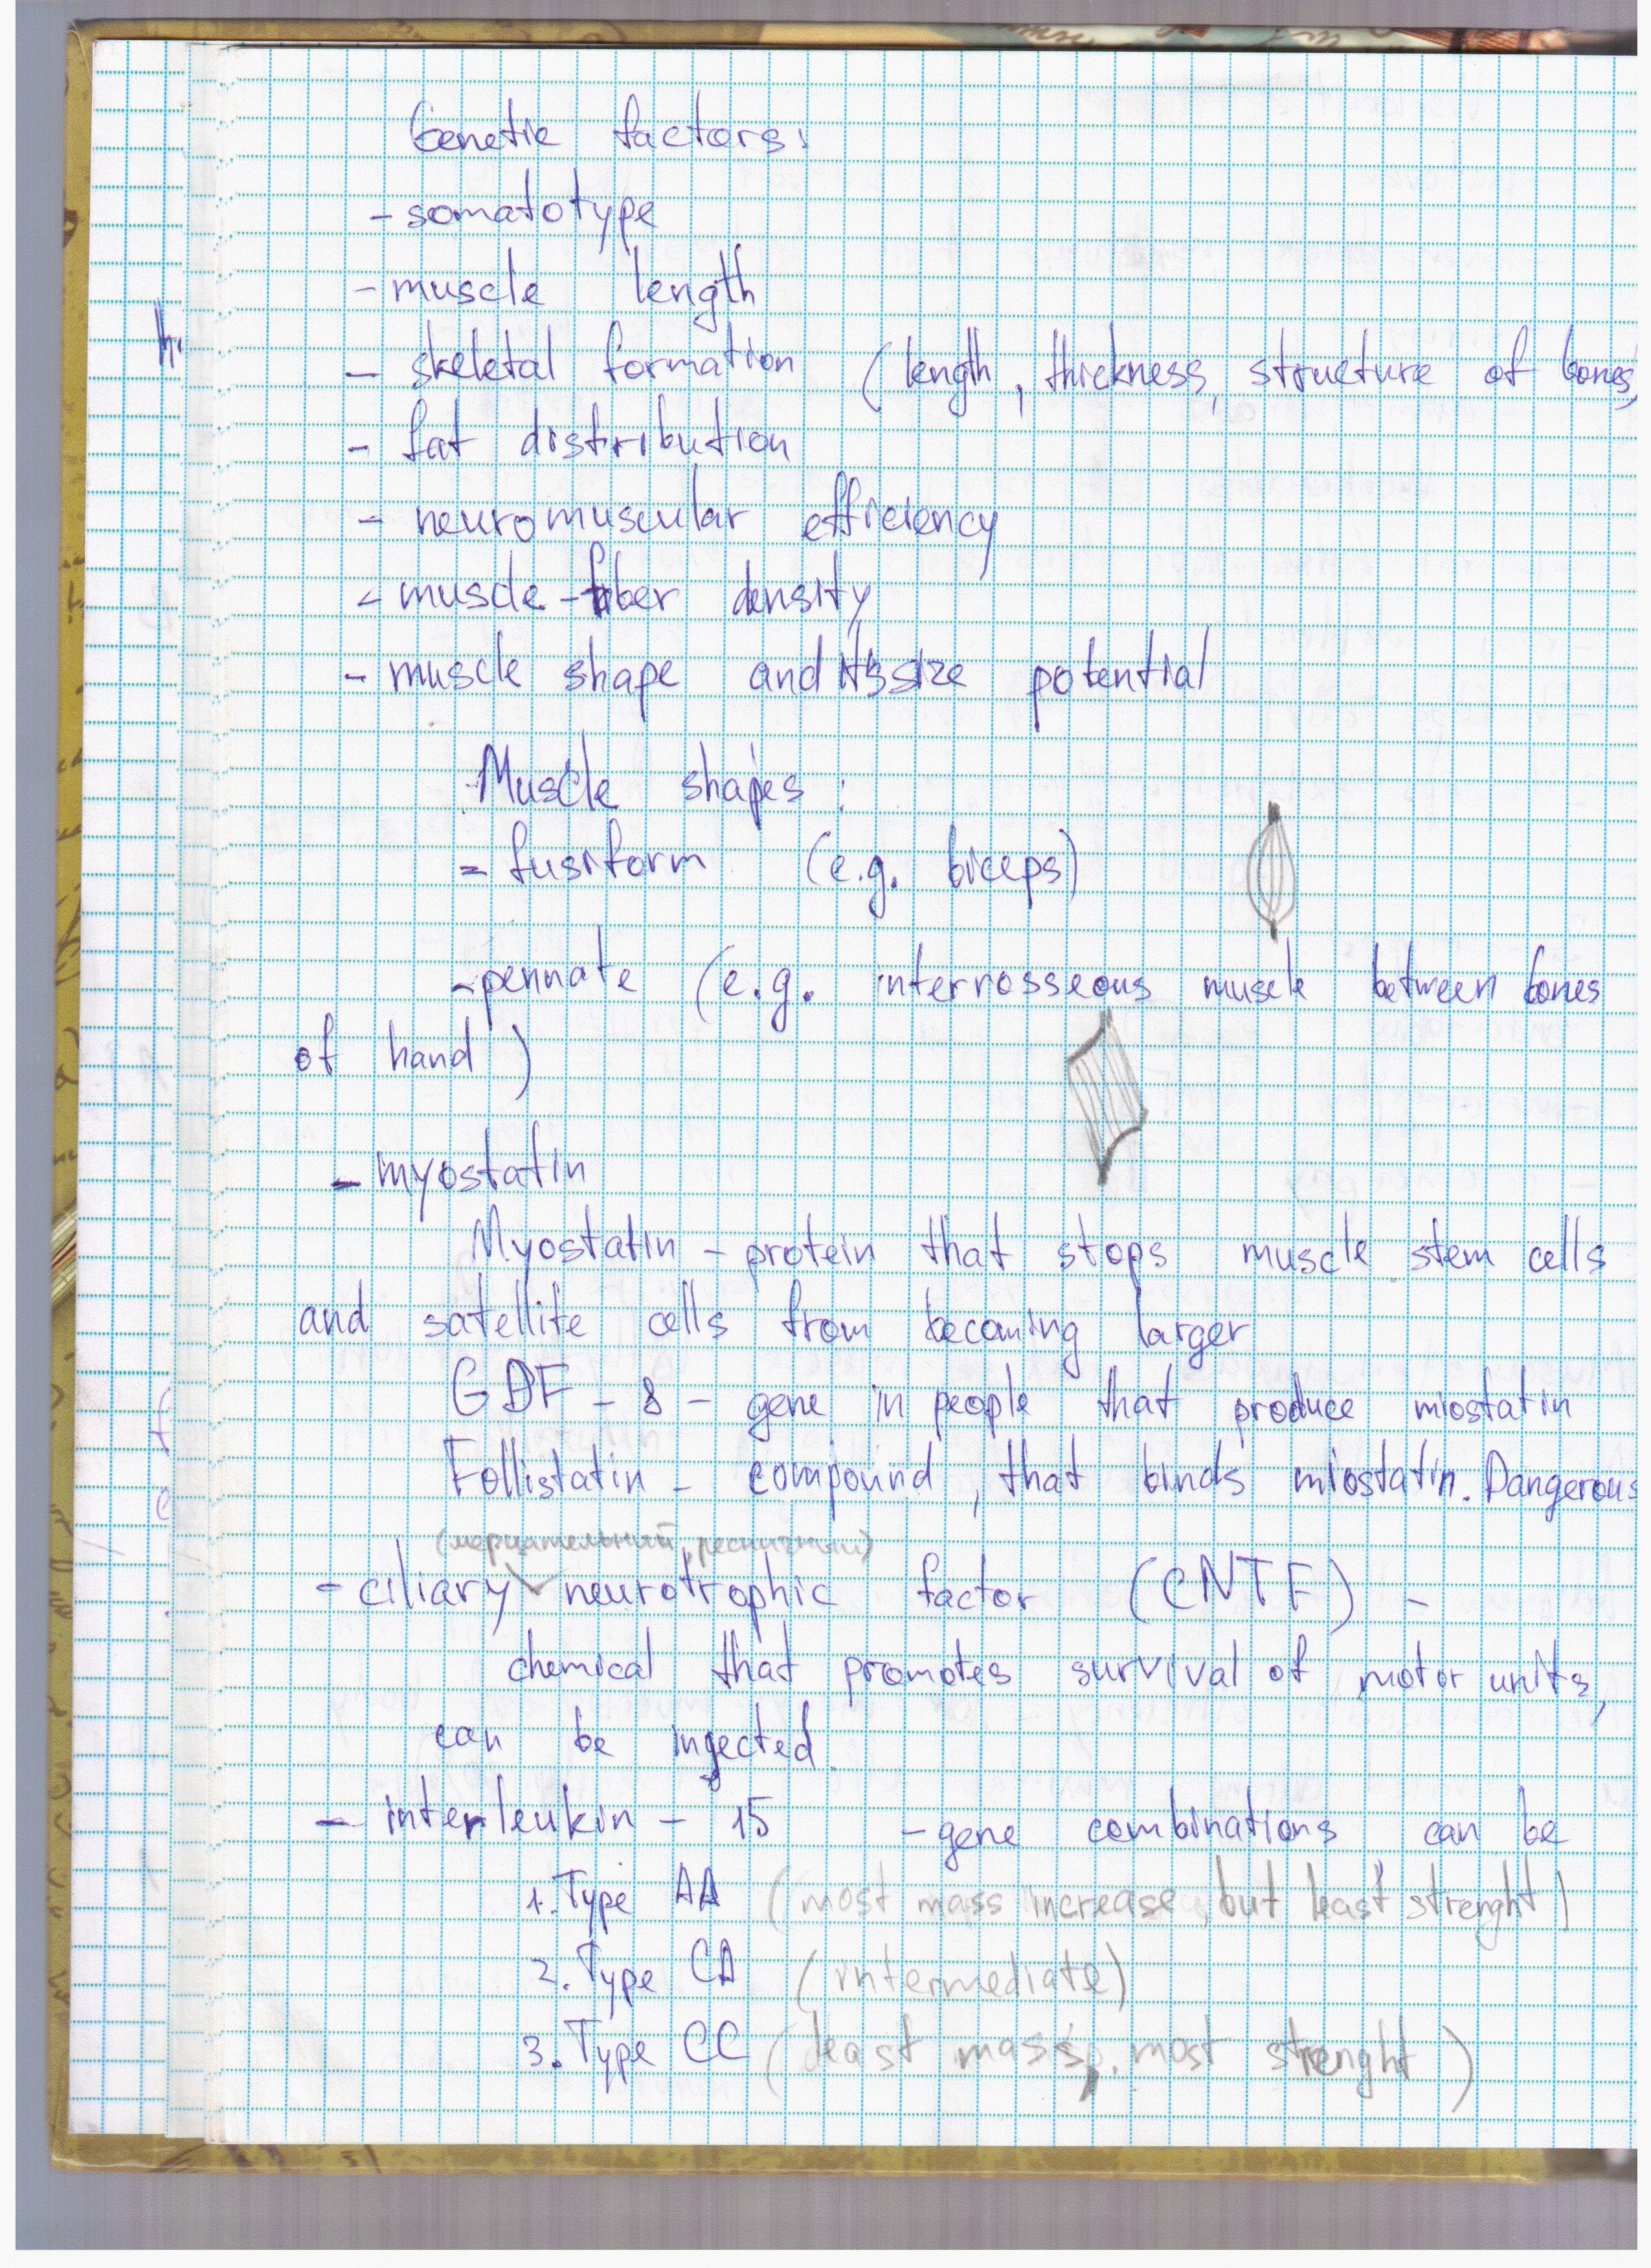 Genetic factors:
- somatotype
- muscle length
- skeletal formation (length, thickness, structure of bones)
- fat distribution
- neuromuscular efficiency
- muscle-fiber density
- muscle shape and its size potential
Muscle shapes:
- fusiform (e.g. biceps)
- pennate (e.g. interrosseous muscle between bones
of hand)
- myostatin
Myostatin - protein that stops muscle stem cells
and satellite cells from becoming larger
GDF - 8 - gene in people that produce miostatin
Follistatin - compound, that binds miostatin. Dangerous
(мерцательный, ресничный)
- ciliary neurotrophic factor (CNTF) -
chemical that promotes survival of motor units,
can be ingected.
- interleukin - 15 - gene combinations can be
1. Type AA (most mass increase, but least strenght)
2. Type CA (intermediate)
3. Type CC (least mass, most strenght)